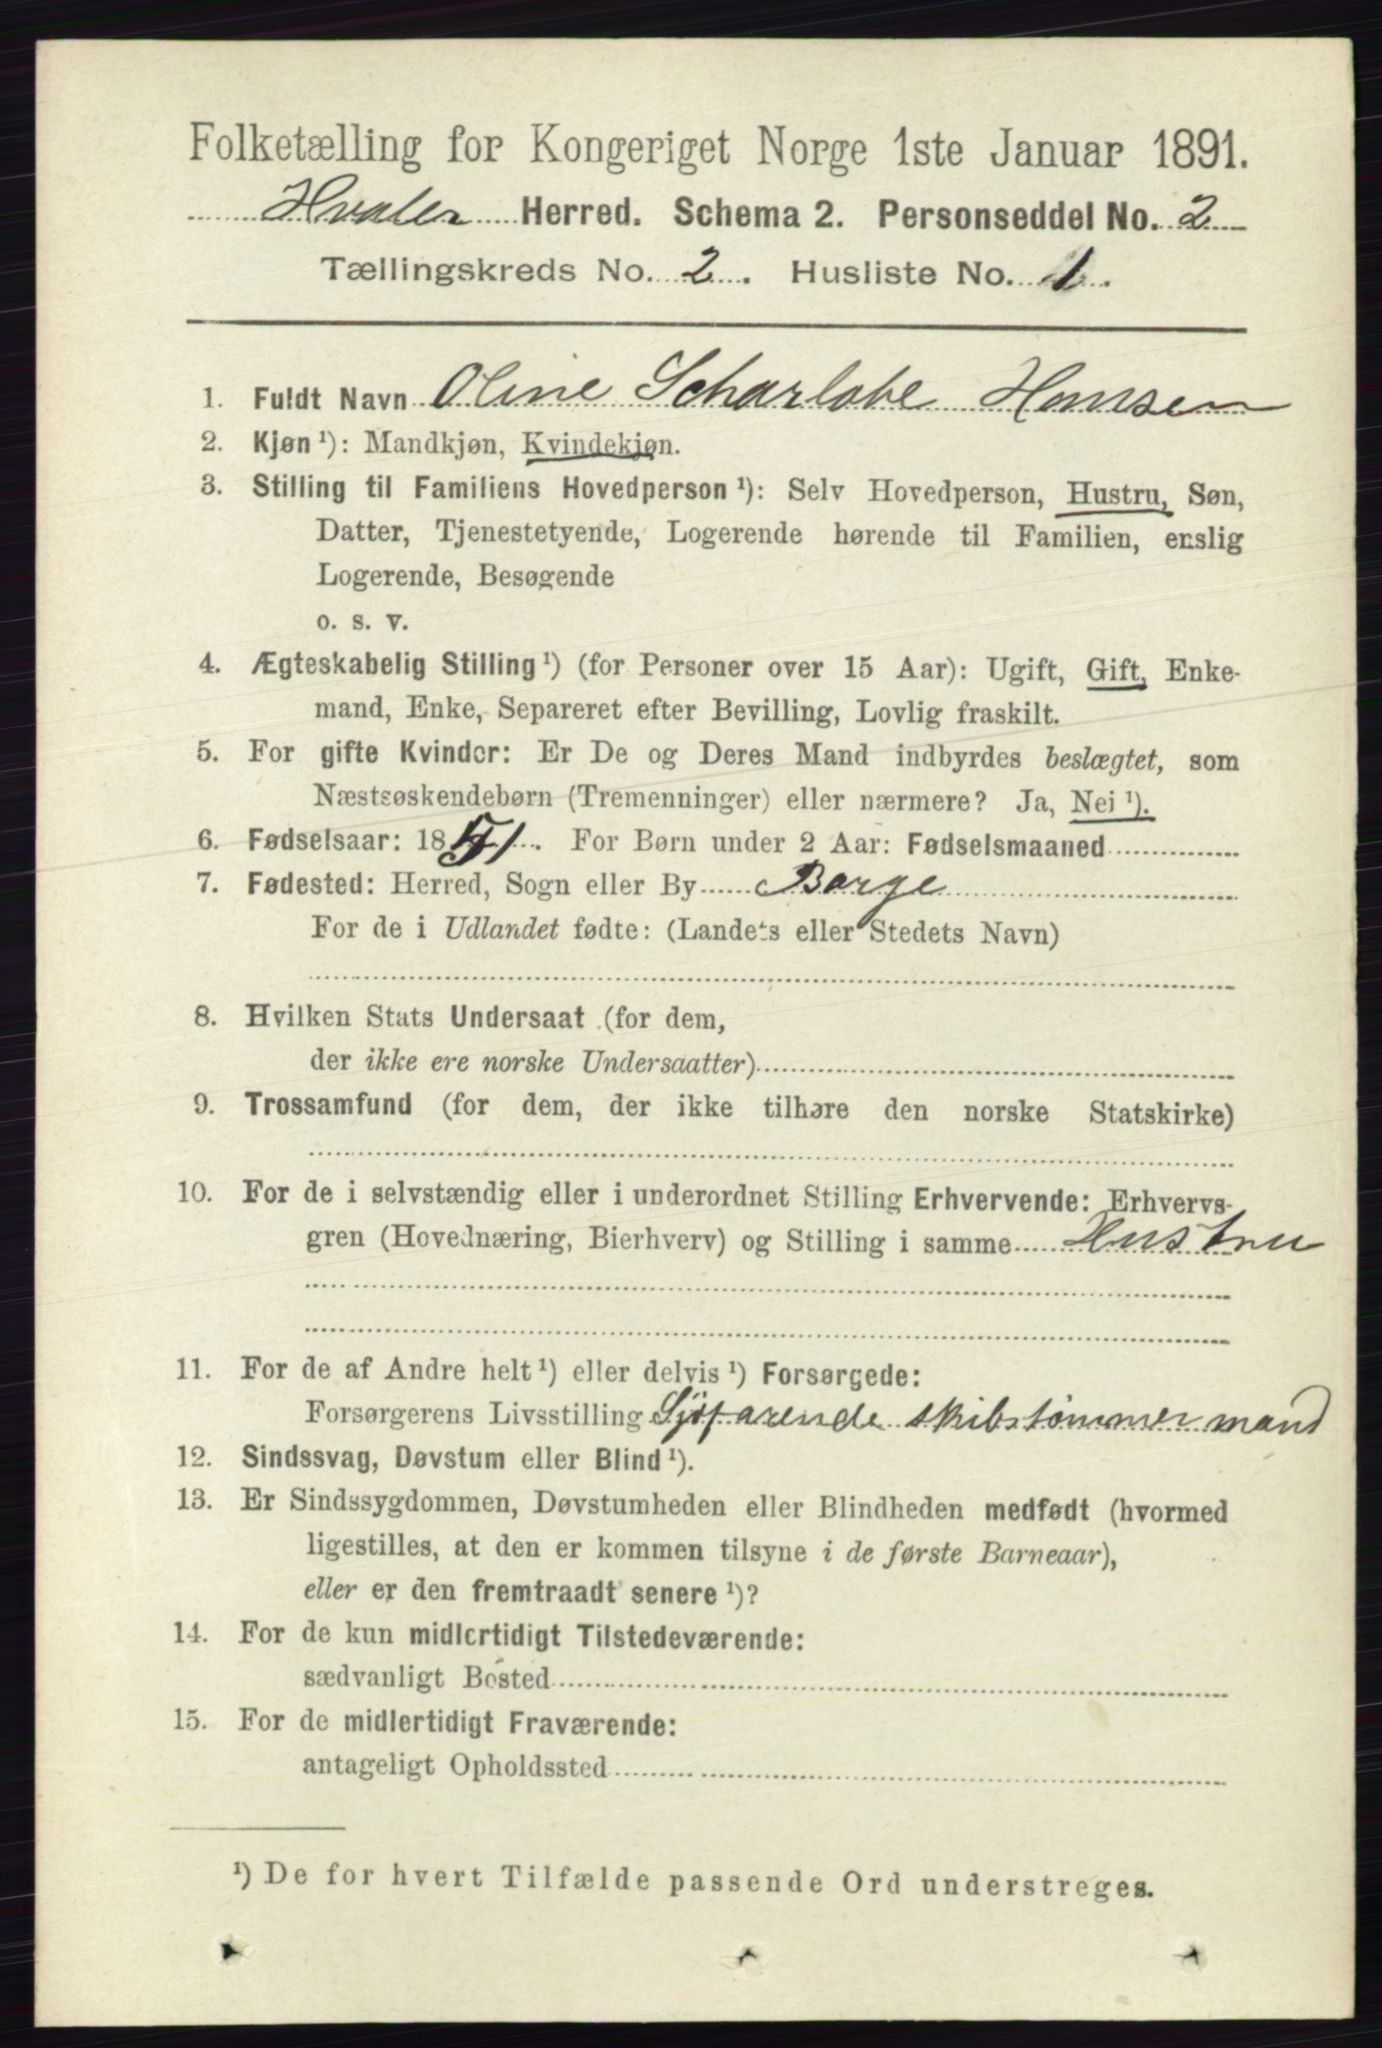 Folketælling for Kongeriget Norge 1ste Januar 1891.
Hvaler Herred. Schema 2. Personseddel No. 2
Tællingskreds No. 2. Husliste No. 1.
1. Fuldt Navn Oline Scharlobe Hansen
2. Kjøn ¹): Mandkjøn, Kvindekjøn.
3. Stilling til Familiens Hovedperson ¹): Selv Hovedperson, Hustru, Søn,
Datter, Tjenestetyende, Logerende hørende til Familien, enslig
Logerende, Besøgende
o. s. v.
4. Ægteskabelig Stilling ¹) (for Personer over 15 Aar): Ugift, Gift, Enke-
mand, Enke, Separeret efter Bevilling, Lovlig fraskilt.
5. For gifte Kvinder: Er De og Deres Mand indbyrdes beslægtet, som
Næstsøskendebørn (Tremenninger) eller nærmere? Ja, Nei ¹).
6. Fødselsaar: 1851. For Børn under 2 Aar: Fødselsmaaned
7. Fødested: Herred, Sogn eller By Borge
For de i Udlandet fødte: (Landets eller Stedets Navn)
8. Hvilken Stats Undersaat (for dem,
der ikke ere norske Undersaatter)
9. Trossamfund (for dem, der ikke tilhøre den norske Statskirke)
10. For de i selvstændig eller i underordnet Stilling Erhvervende: Erhvervs-
gren (Hovednæring, Bierhverv) og Stilling i samme Hustru
11. For de af Andre helt ¹) eller delvis ¹) Forsørgede:
Forsørgerens Livsstilling Sjøfarende skibstømmermand
12. Sindssvag, Døvstum eller Blind ¹).
13. Er Sindssygdommen, Døvstumheden eller Blindheden medfødt (hvormed
ligestilles, at den er kommen tilsyne i de første Barneaar),
eller er den fremtraadt senere ¹)?
14. For de kun midlertidigt Tilstedeværende:
sædvanligt Bosted
15. For de midlertidigt Fraværende:
antageligt Opholdssted
¹) De for hvert Tilfælde passende Ord understreges.